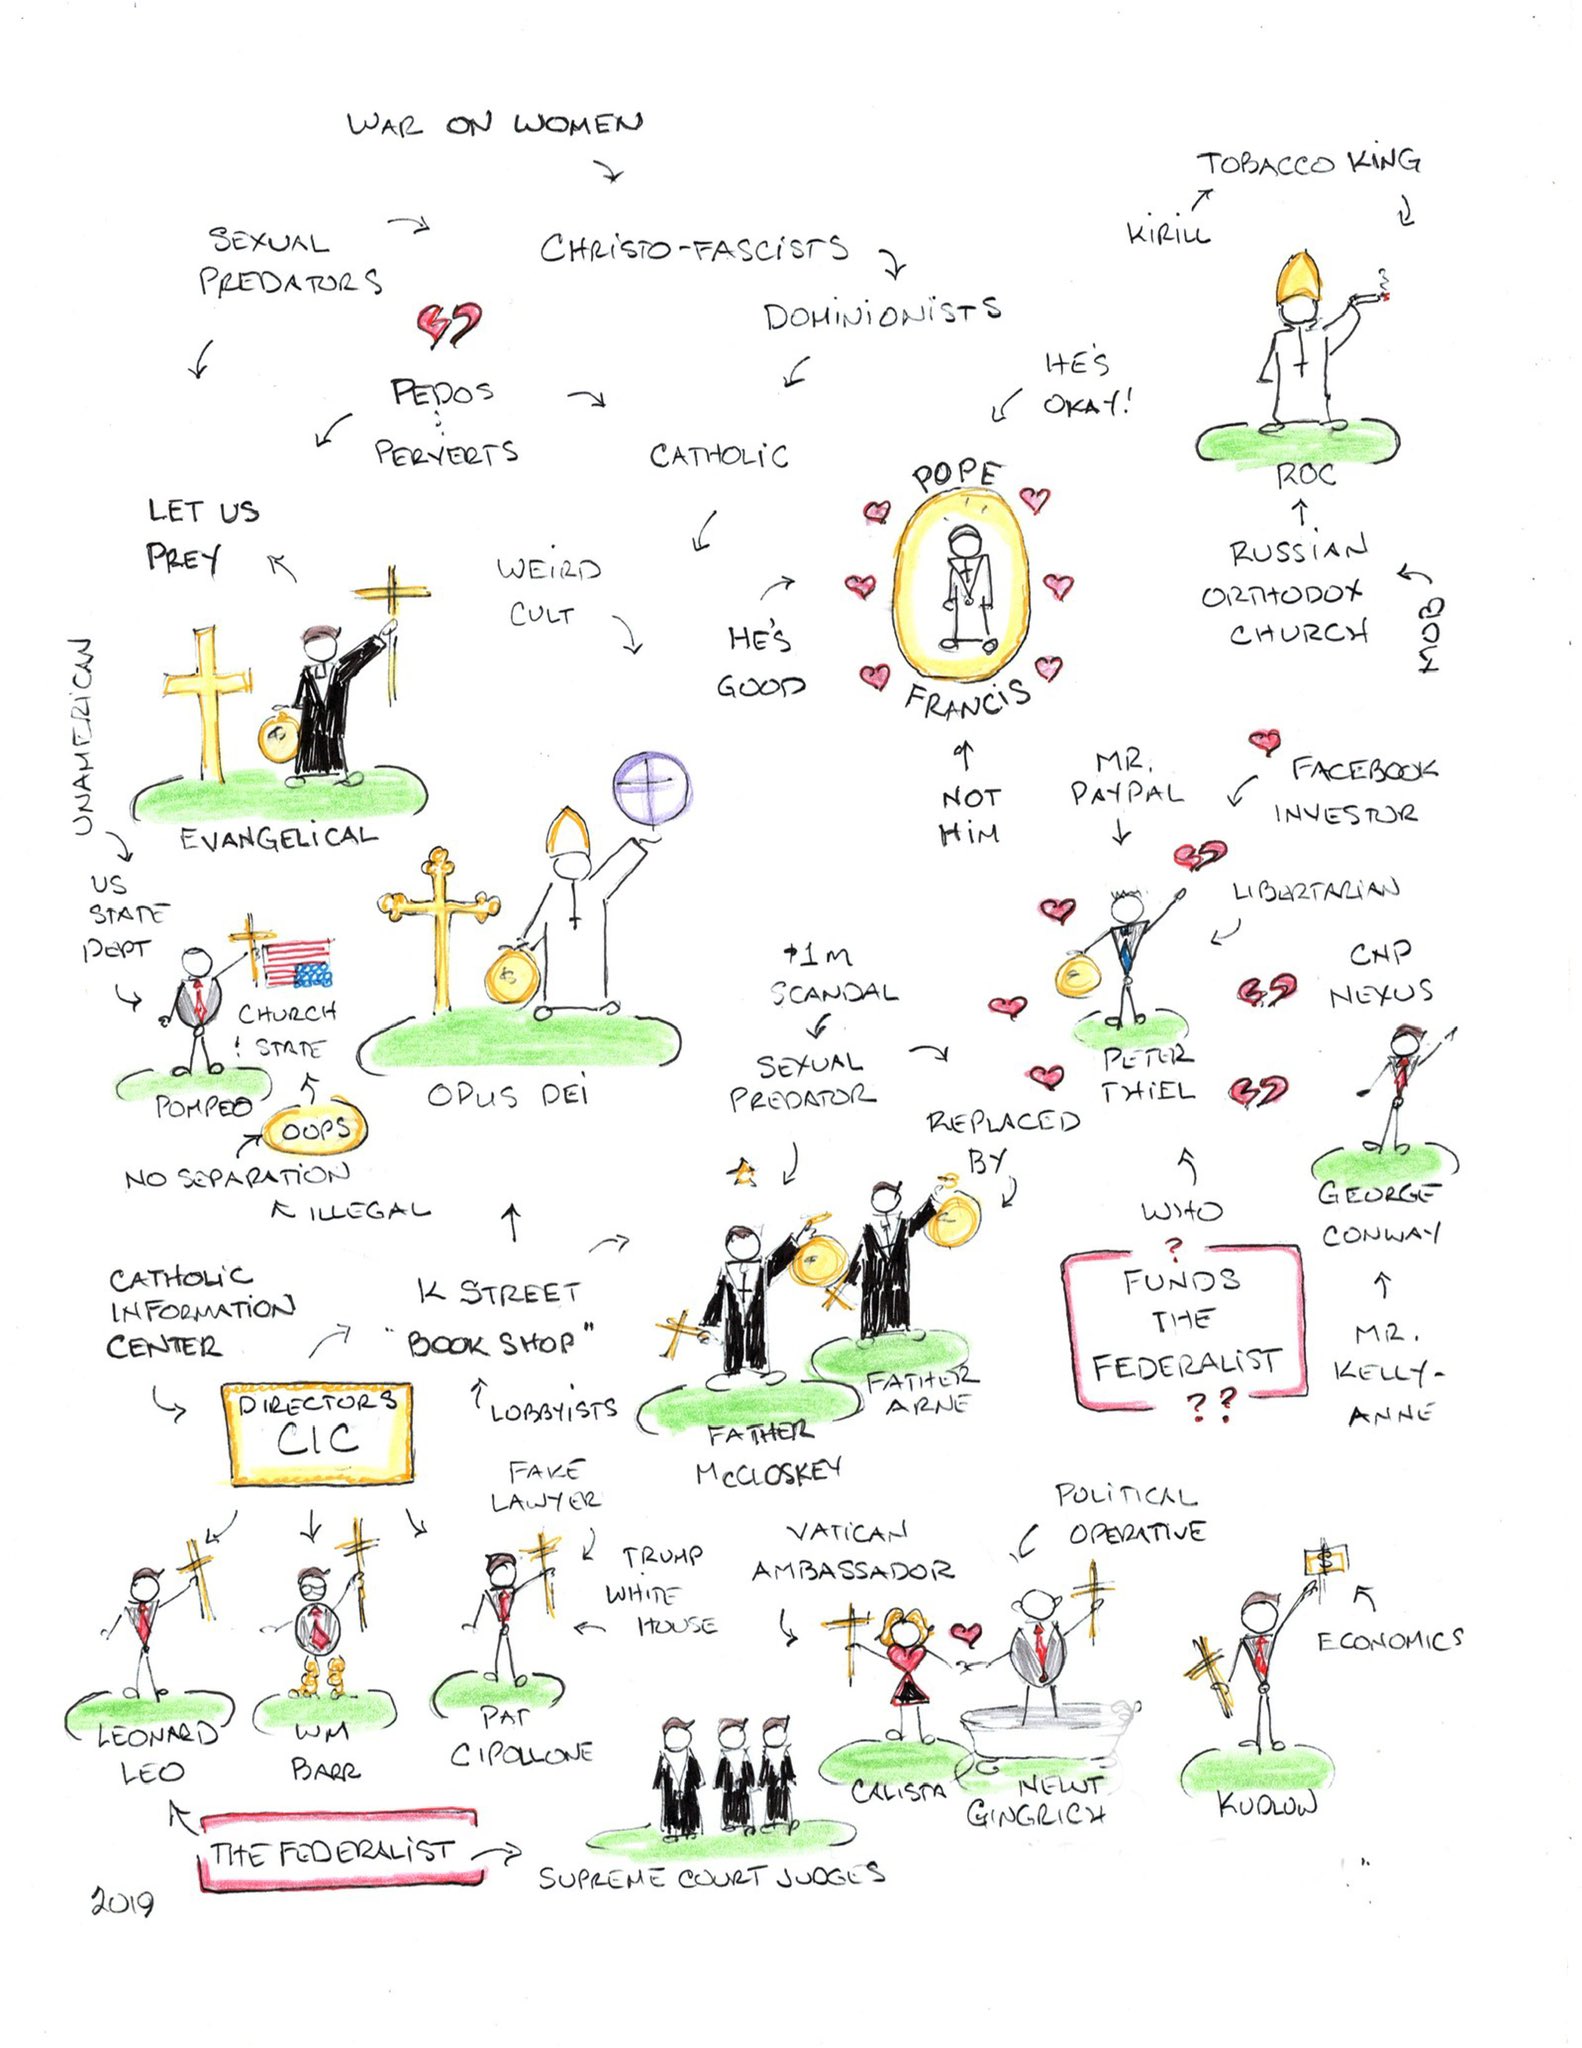 WAR ON WOMEN
TOBACCO KING
KIRILL
SEXUAL
PREDATORS
CHRISTO-FASCISTS
DOMINIONISTS
HE'S
OKAY!
PEDOS
PERVERTS
CATHOLIC
ROC
RUSSIAN
ORTHODOX
CHURCH
MOB
POPE
FRANCIS
LET US
PREY
WEIRD
CULT
HE'S
GOOD
NOT
HIM
UNAMERICAN
EVANGELICAL
MR.
PAYPAL
FACEBOOK
INVESTOR
LIBERTARIAN
US
STATE
DEPT
CHURCH
! STATE
POMPEO
OOPS
NO SEPARATION
ILLEGAL
$
OPUS DEI
$1M
SCANDAL
SEXUAL
PREDATOR
REPLACED
BY
PETER
THIEL
CNP
NEXUS
GEORGE
CONWAY
MR.
KELLY-
ANNE
WHO
?
FUNDS
THE
FEDERALIST
??
CATHOLIC
INFORMATION
CENTER
K STREET
"BOOK SHOP"
LOBBYISTS
DIRECTORS
CIC
FATHER
McCLOSKEY
FATHER
ARNE
FAKE
LAWYER
TRUMP
WHITE
HOUSE
LEONARD
LEO
WM
BARR
PAT
CIPOLLONE
VATICAN
AMBASSADOR
POLITICAL
OPERATIVE
CALISTA
NEWT
GINGRICH
$
ECONOMICS
KUDLOW
THE FEDERALIST
SUPREME COURT JUDGES
2019